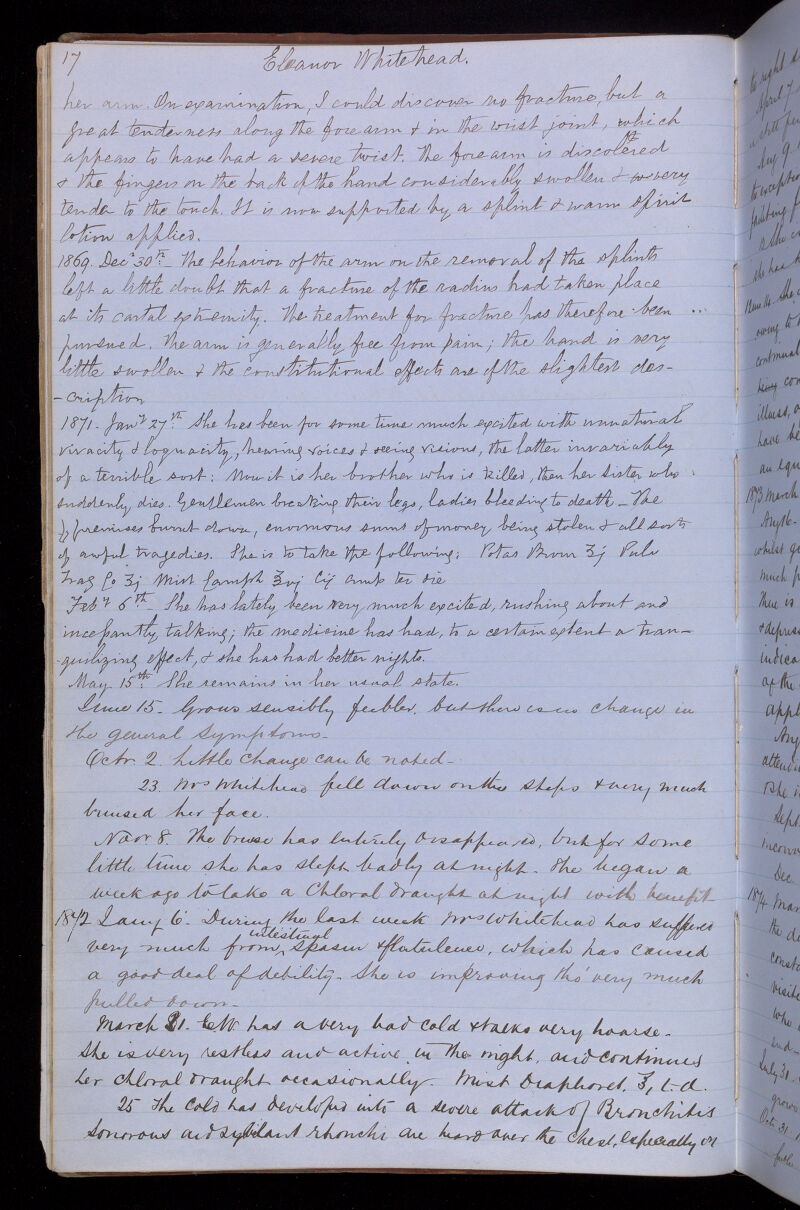 17 Eleanor Whitehead.
her arm. On examination, I could discover no fracture, but a
great tenderness along the fore arm & in the wrist joint, which
appears to have had a severe twist. The fore arm is discolored
& the fingers on the back of the hand considerably swollen & very
tender to the touch. It is now supported by a splint & warm spirit
lotion applied.
1869. Decr 30th. The behavior of the arm on the removal of the splints
left a little doubt that a fracture of the radius had taken place
at its carpal extremity. The treatment for fracture has therefore been
pursued. The arm is generally free from pain; the hand is very
little swollen & the constitutional effects are of the slightest des-
-cription
1871. Jany 27th. She has been for some time much excited with unnatural
vivacity & loquacity, hearing voices & seeing visions, the latter invariably
of a terrible sort: Now it is her brother who is killed, then her sister who
suddenly dies. Gentlemen breaking their legs, ladies bleeding to death - The
premises burnt down, enormous sums of money being stolen & all sorts
of awful tragedies. She is to take the following: Potas Brom ʒj Pulv
Trag Co ʒj Mist Camph ʒvj Cij amp ter die
Feby 6th - She has lately been very much excited, rushing about and
incessantly talking; the medicine has had, to a certain extent a tran-
-quilizing effect, & she has had better nights.
May 15th. She remains in her usual state.
June 15. Grows sensibly feebler, but there is no change in
the general symptoms.
Octr. 2. Little change can be noted -
23. Mrs Whitehead fell down on the steps & very much
bruised her face.
Novr 8. The bruise has entirely disappeared, but for some
little time she has slept badly at night. She began a
week ago to take a Chloral draught at night with benefit
1872 Jany 6. During the last week Mrs Whitehead has suffered
very much from intestinal spasm & flatulence, which has caused
a good deal of debility. She is improving tho' very much
pulled down -
March 21. EW has a very bad cold & talks very hoarse.
She is very restless and active in the night, and continues
her chloral draught occasionally. Mist Diaphoret. ʒj t.d.
25 The cold has developed into a severe attack of Bronchitis
Sonorous and sybilant rhonchi are heard over the chest, especially on